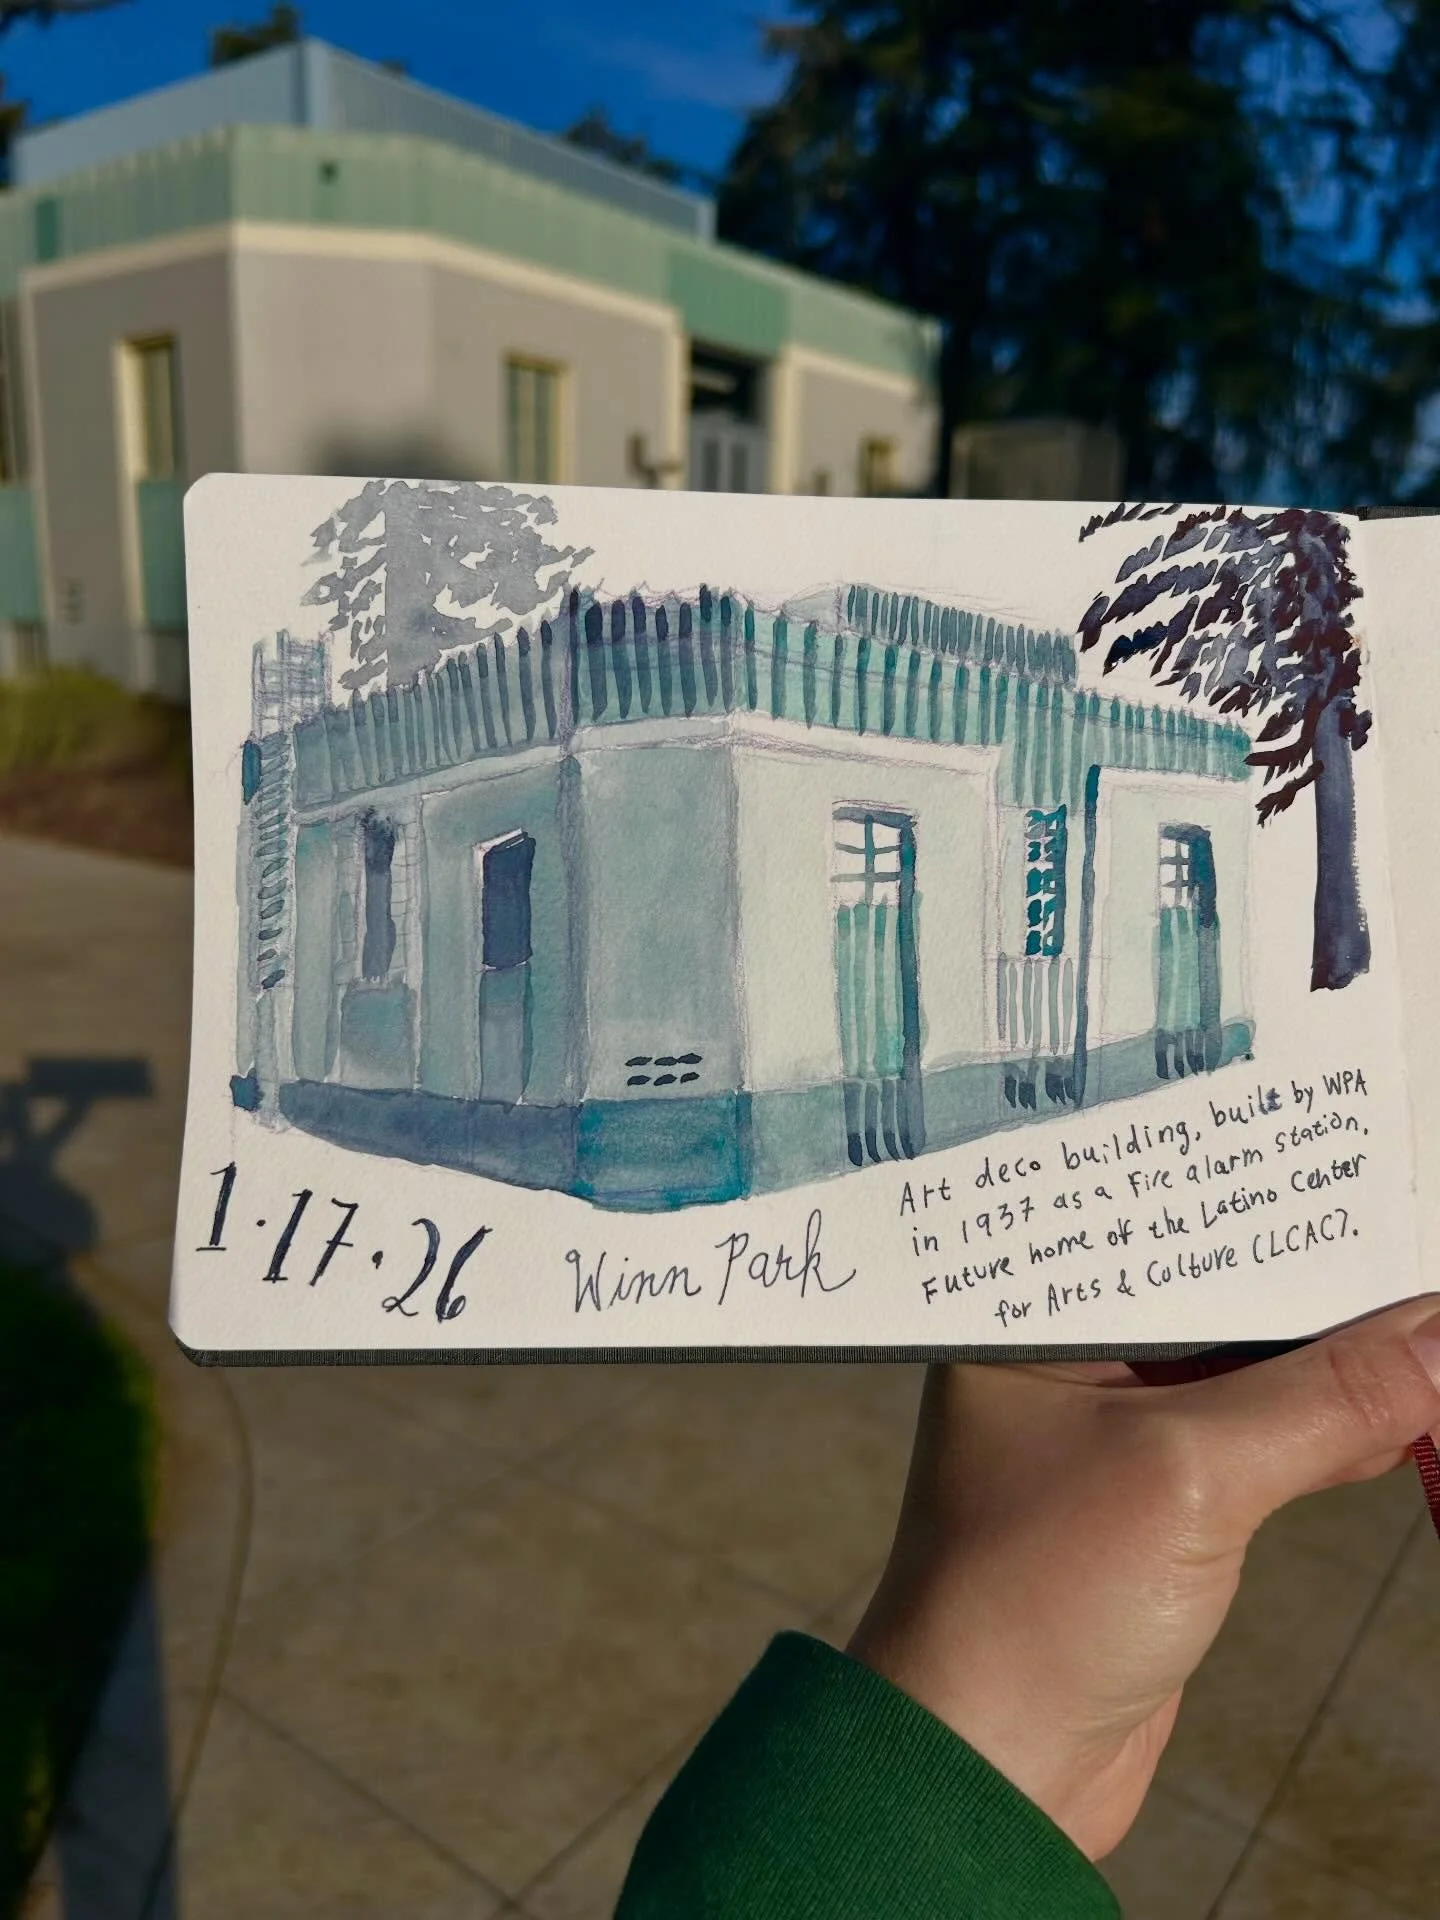 1·17·26
Winn Park
Art deco building, built by WPA
in 1937 as a fire alarm station.
Future home of the Latino Center
for Arts & Culture (LCAC).